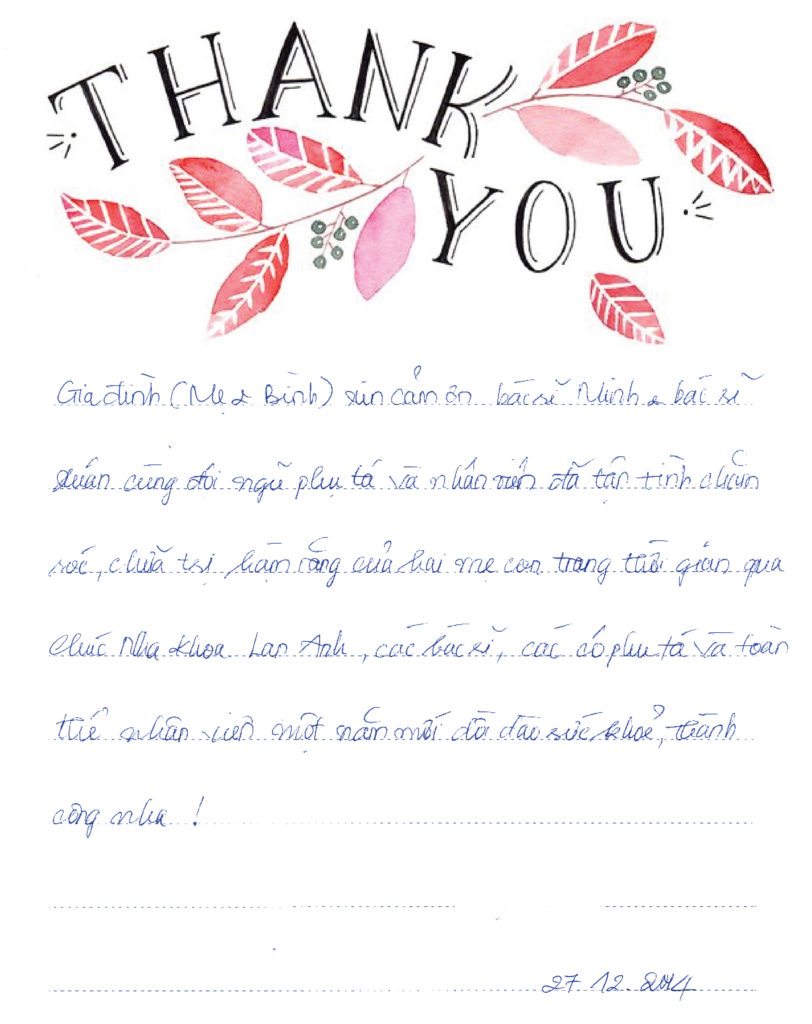 THANK
YOU
Gia đình (Mẹ & Bình) xin cảm ơn bác sĩ Minh & bác sĩ
Xuân cùng đội ngũ phụ tá và nhân viên đã tận tình chăm
sóc, chữa trị hàm răng của hai mẹ con trong thời gian qua
Chúc Nha Khoa Lan Anh, các bác sĩ, các cô phụ tá và toàn
thể nhân viên một năm mới dồi dào sức khoẻ, thành
công nha !
27.12.2014